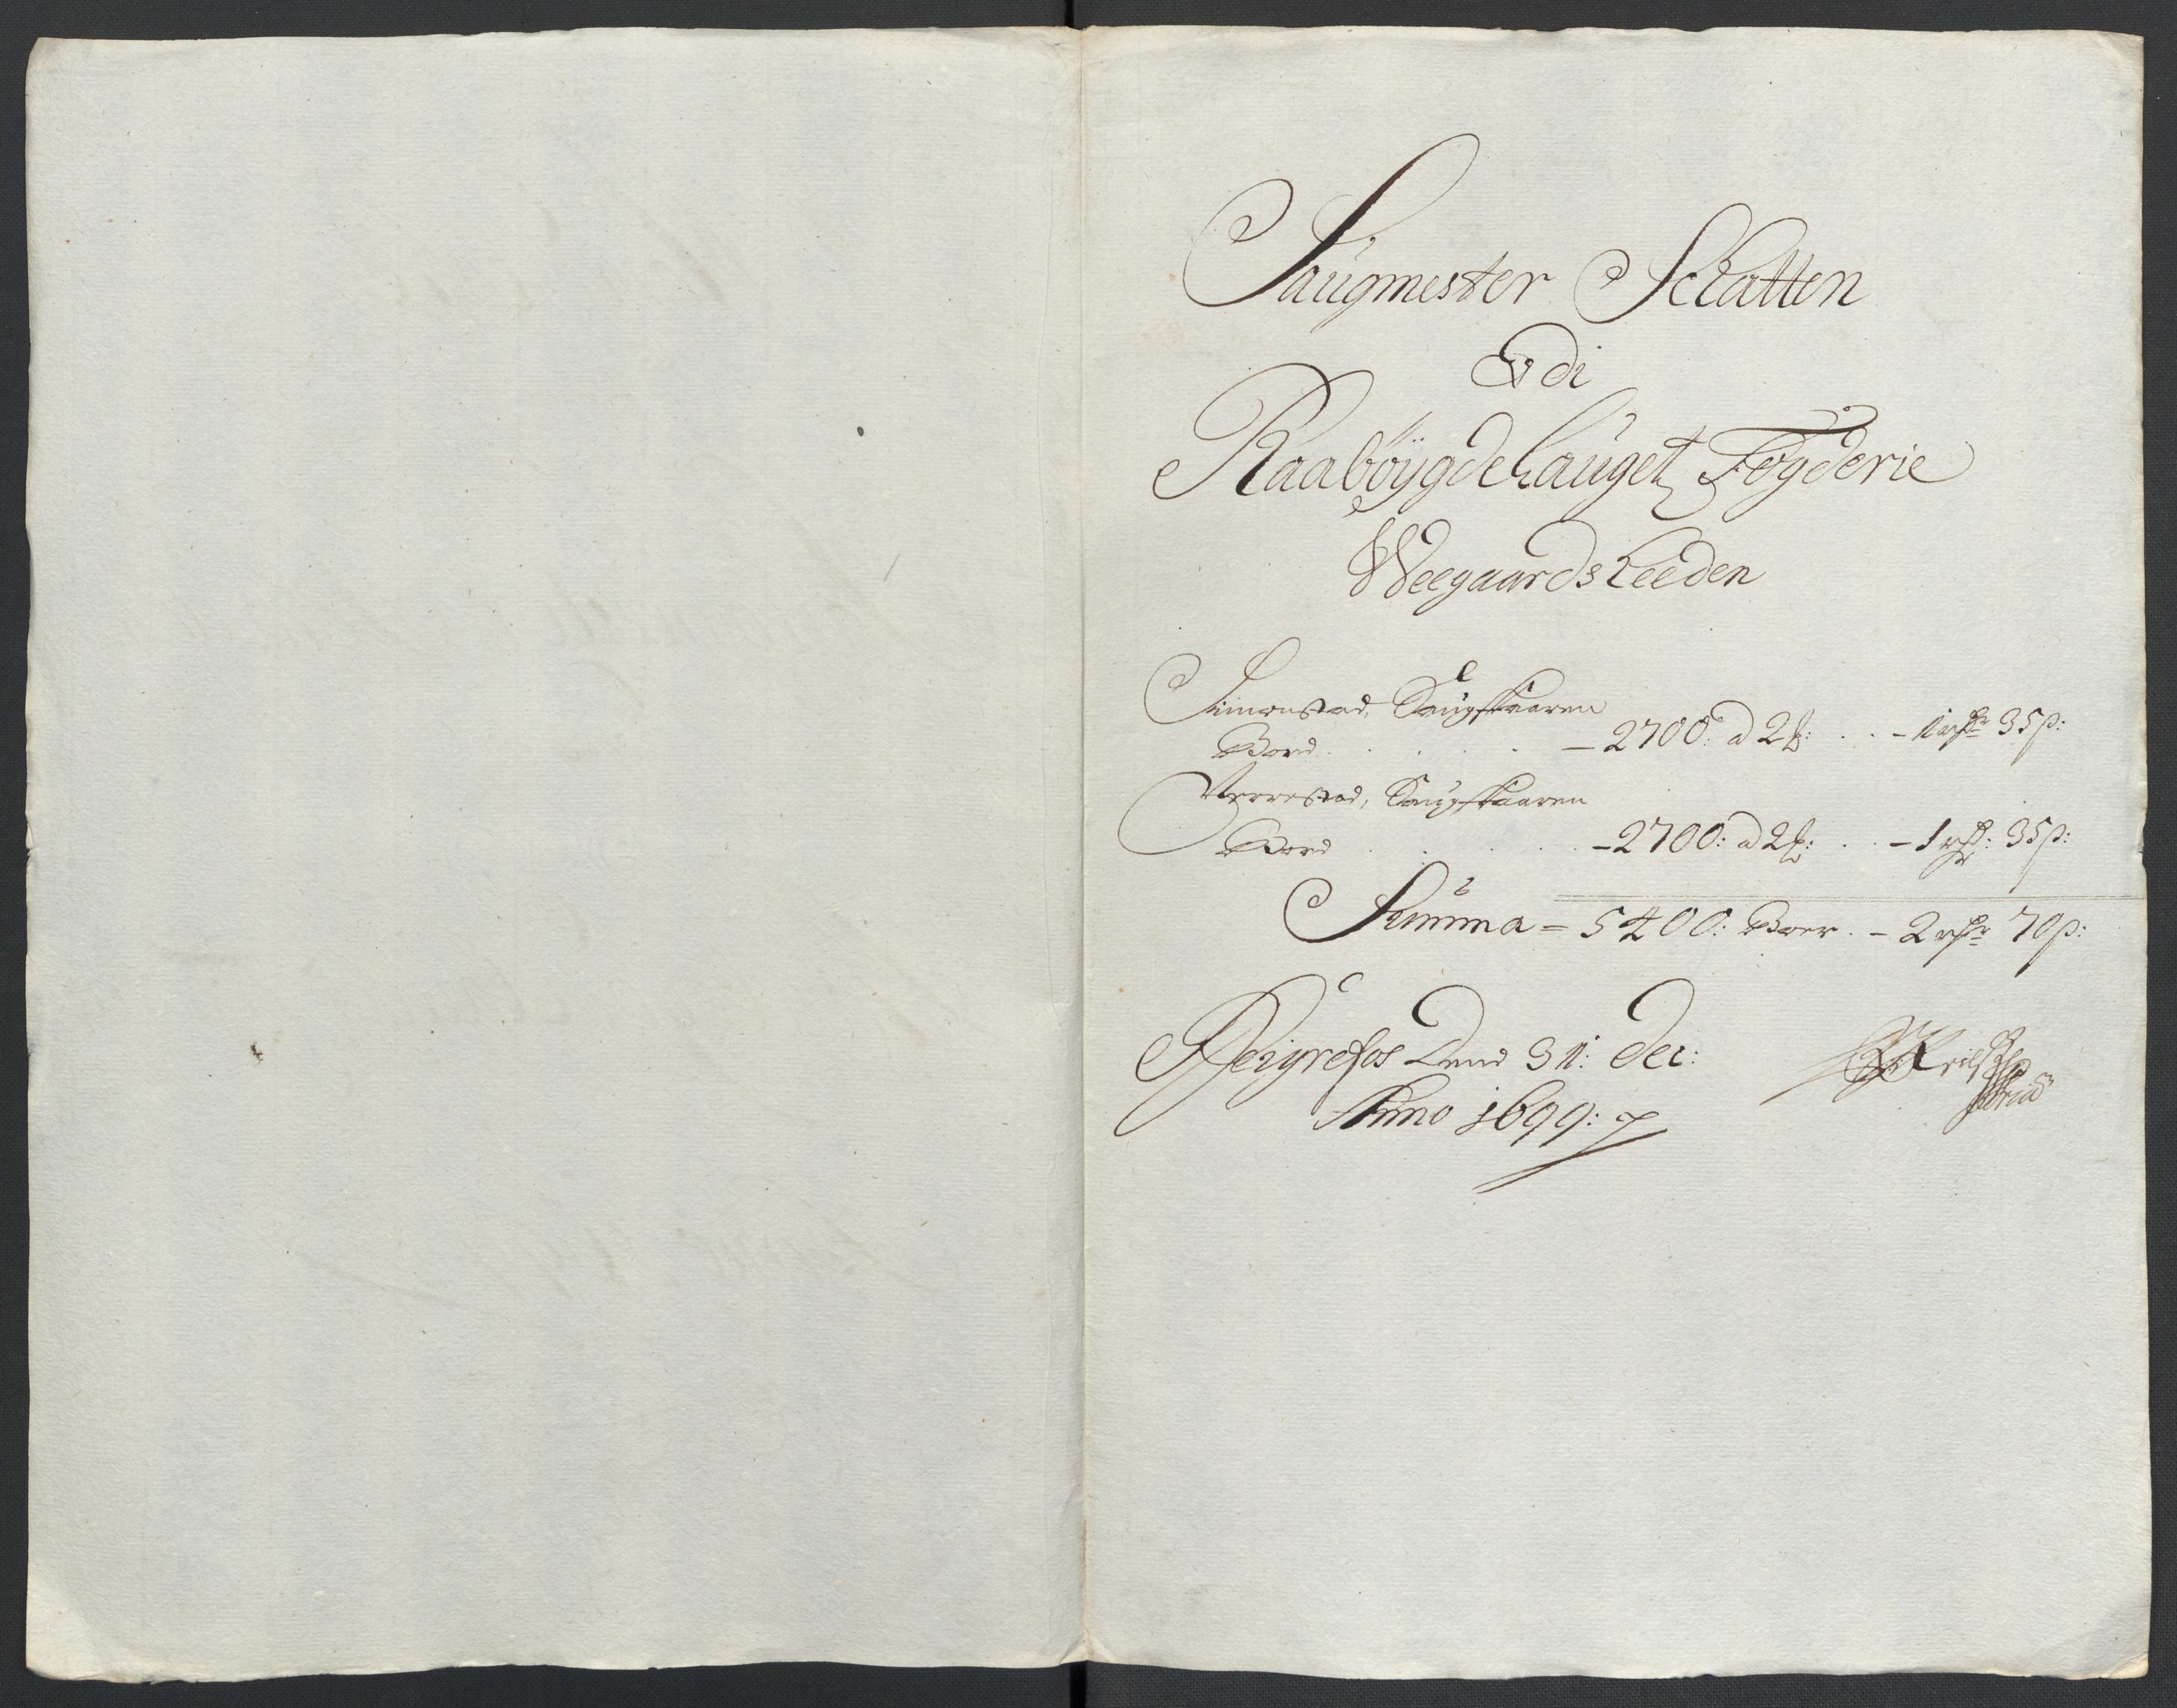 Saugmester Schatten
Udi
Raabøygdelauget Fogderie
Weegaards Leeden
Simonstad, Saugskaaren
Bord . . . . . – 2700: a 2 ß: . . – 1 rdr 35 ß:
Nerrestad, Saugskaaren
Bord . . . . – 2700: a 2 ß: . . – 1 rdr: 35 ß:
Summa = 5400: Boer . – 2 rdr 70 ß:
Reigrefos Dend 31: Dec:
Anno 1699: